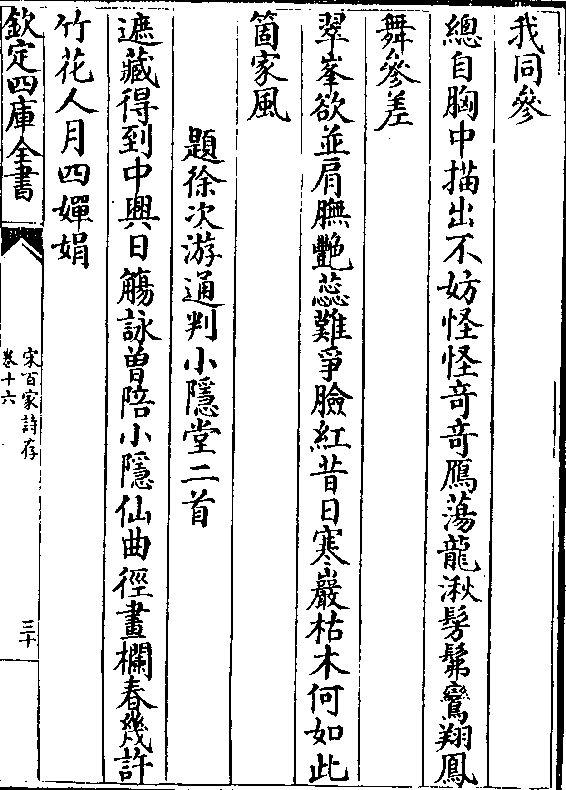 我同參
總自胸中描出不妨怪怪奇奇鴈蕩龍湫髣髴鸞翔鳳
舞參差
翠峯欲並肩膴艷蕊難爭臉紅昔日寒巖枯木何如此
箇家風
題徐次游通判小隱堂二首
遮藏得到中興日觴詠曽陪小隱仙曲徑畫欄春幾許
竹花人月四嬋娟
欽定四庫全書
宋百家詩存
卷十六
三十